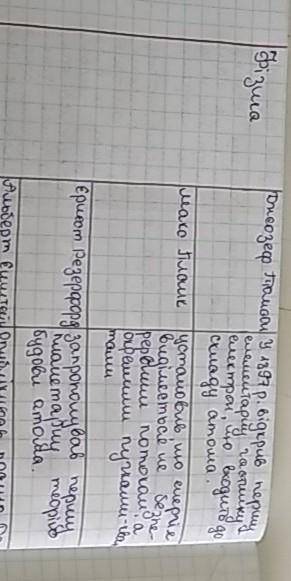 Фізика
Джозеф Томсон У 1897 р. відкрив першу
елементарну частинку
електрон, що входить до
складу атома.
Макс Планк установив, що енергія
виділяється не безпе-
рервним потоком, а
окремими пучками-кван
тами
Ернест Резерфорд запропонував першу
планетарну теорію
будови атома.
Альберт Ейнштейн